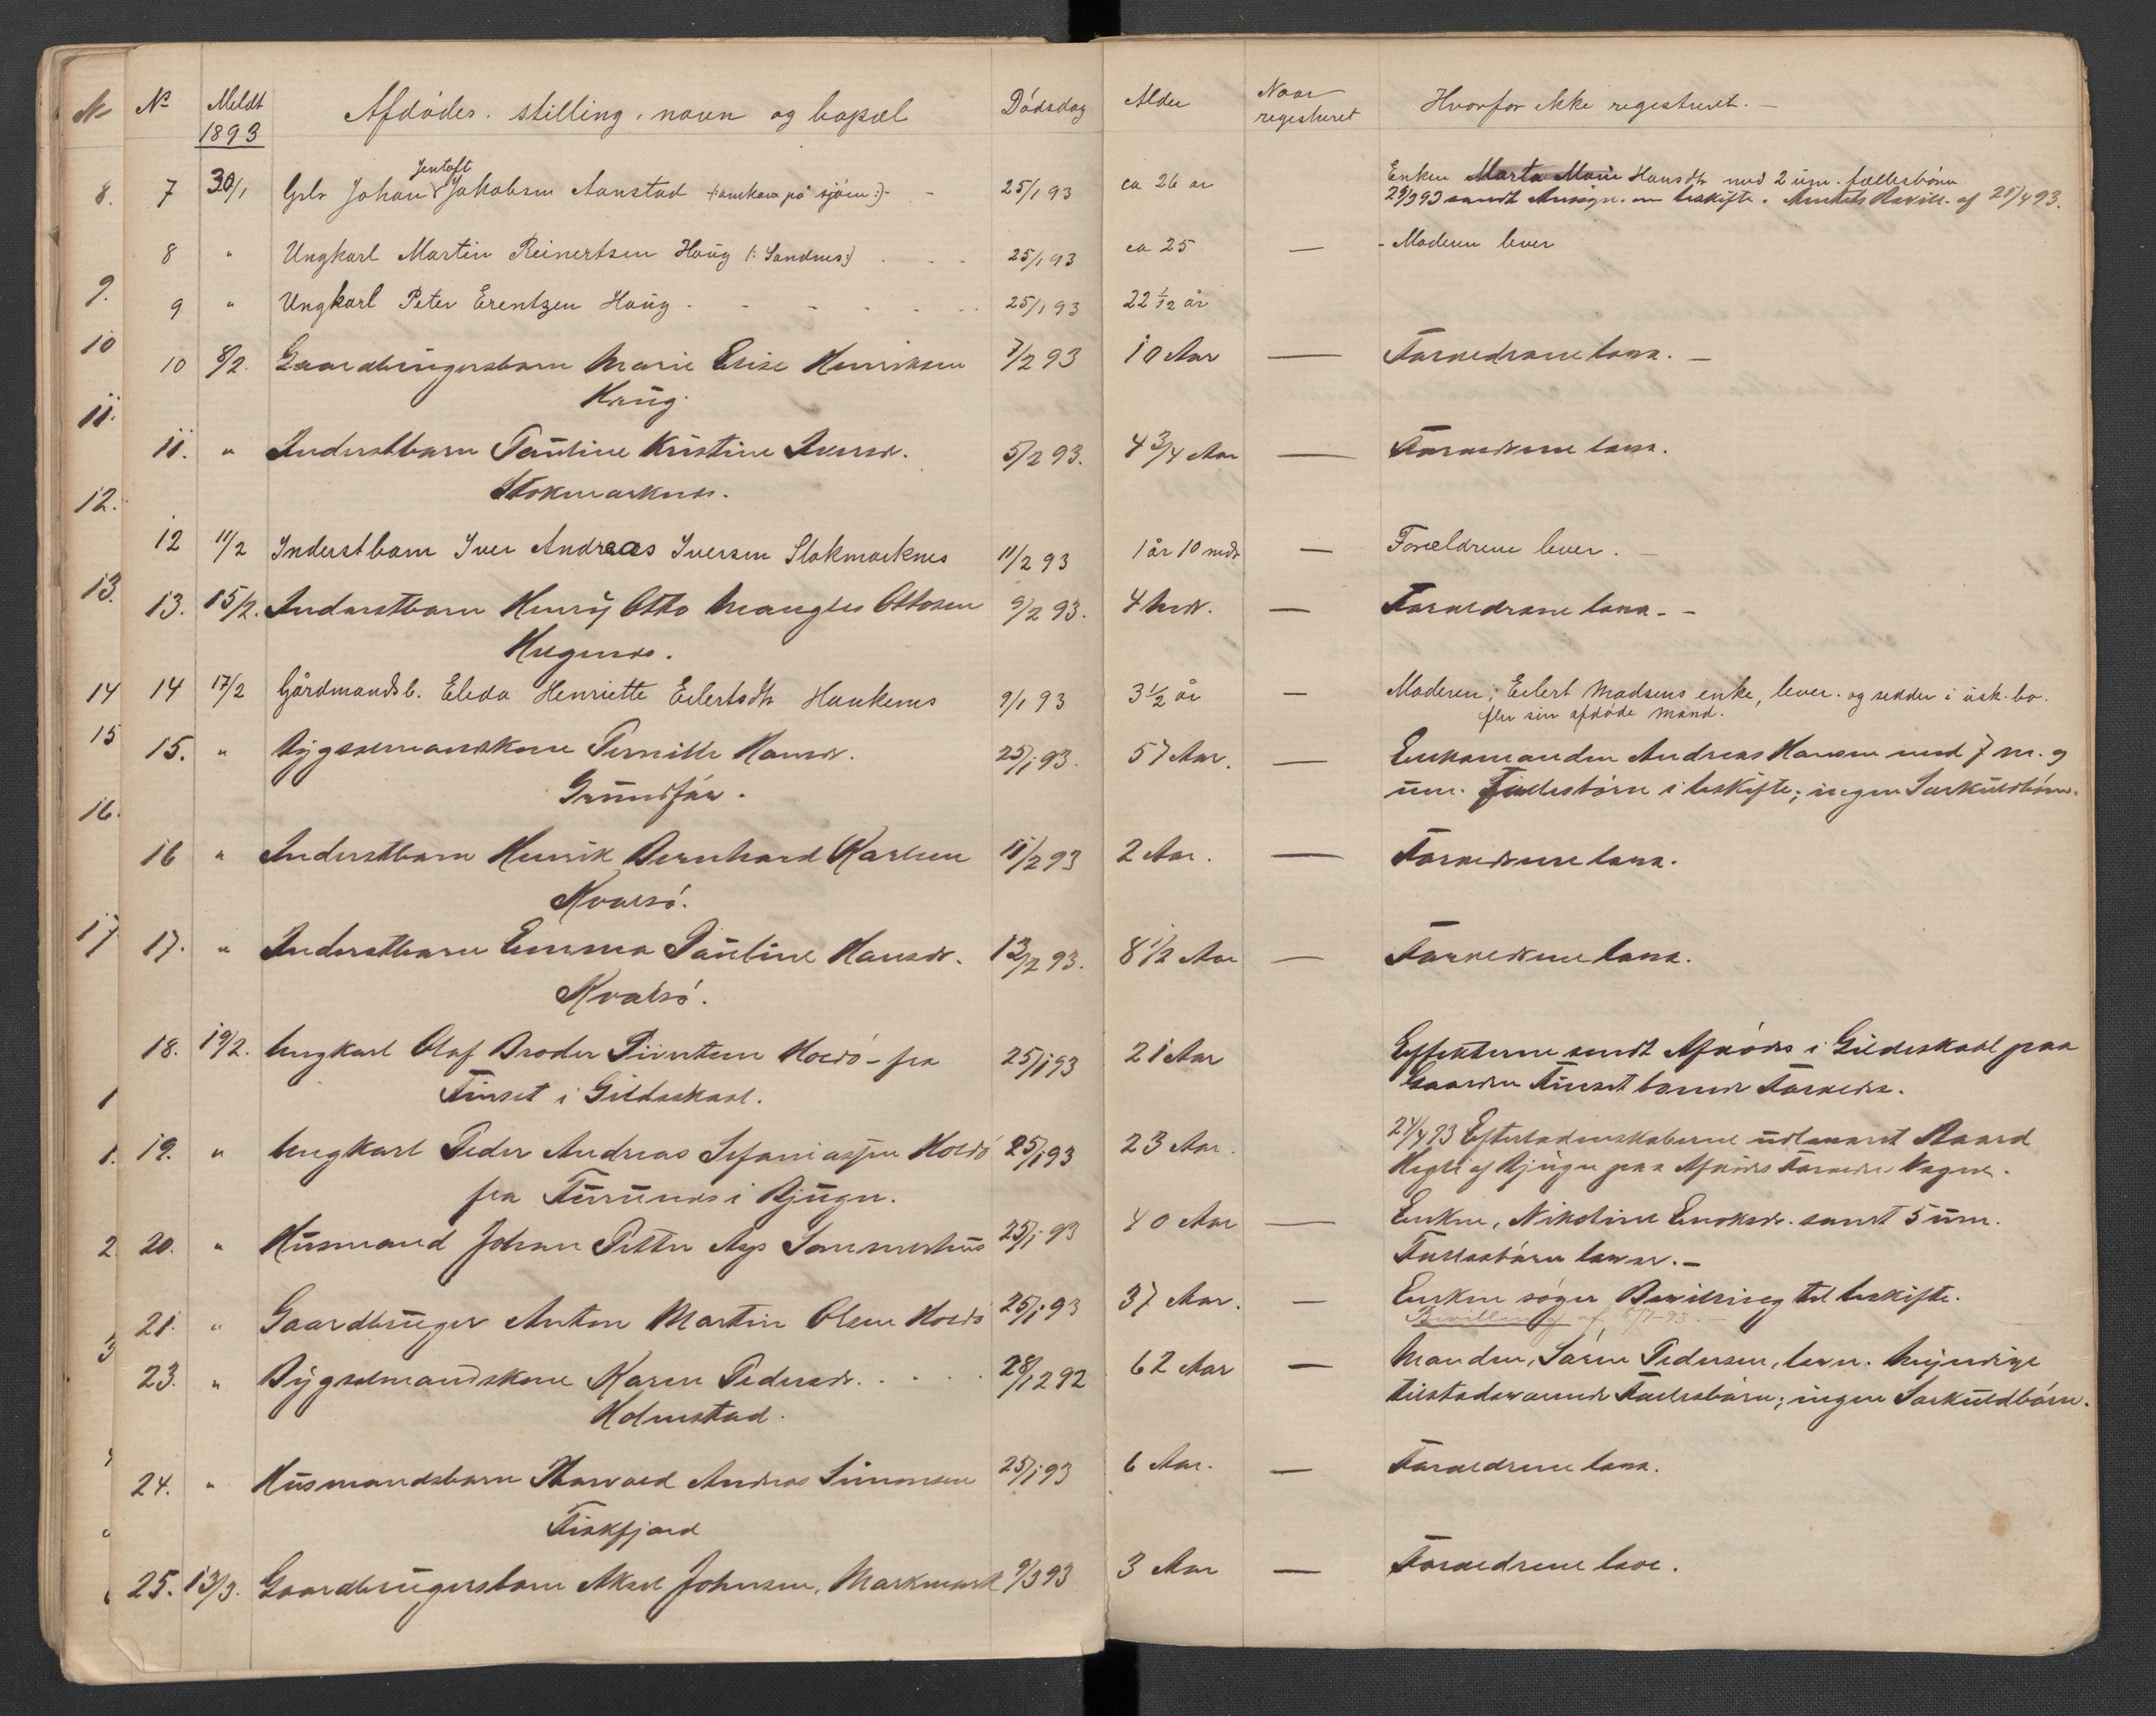 № Meldt 1893 Afdødes stilling, navn og bopæl Dødsdag Alder Naar registreret Hvorfor ikke registreret. –
7 30/1 Gbr Johan Jentoft Jakobsen Aanstad (: omkom på sjøen :) 25/1 93 ca 26 år Enken Marta Marie Hansdtr med 2 um. fællesbörn
29/3 93 sendt Ansøgn. om uskifte. Amtets Bevill. af 21/4 93.
8 " Ungkarl Martin Reinertsen Haug (: Sandnes :) 25/1 93 ca 25 — - Moderen lever
9 " Ungkarl Peter Erentzen Haug 25/1 93 22 1/12 år
10 8/2. Gaardbrugersbarn Marie Elise Henriksen 7/2 93 10 Aar — Forældrene leve. –
Haug.
11. " Inderstbarn Pauline Kristine Iversd. 5/2 93. 4 3/4 Aar — Forældrene leve.
Stokmarknes.
12 11/2 Inderstbarn Iver Andreas Iversen Stokmarknes 11/2 93 1 år 10 mdr — Forældrene lever. –
13. 15/2. Inderstbarn Henry Otto Mangles Ottosen 9/2 93. 4 Mdr. — Forældrene leve. –
14 17/2 Gårdmandsb. Elida Henriette Eilertsdtr Haukenes 9/1 93 3 1/2 år — Moderen, Eilert Madsens enke, lever. og sidder i usk. bo.
efter sin afdøde mand.
15. " Bygselmandskone Pernille Hansd. 25/1 93. 57 Aar. — Enkemanden Andreas Hansen med 7 m. og
Grundfør. um. Fællesbörn i uskifte; ingen Særkuldbörn.
16 " Inderstbarn Henrik Bernhard Karlsen 11/2 93 2 Aar. — Forældrene leve.
Kvalsö.
17. " Inderstbarn Emma Pauline Hansd. 12/2 93. 8 1/2 Aar — Forældrene leve.
Kvalsö.
18. 19/2. Ungkarl Olaf Broder Sivertsen Holdö – fra 25/1 93 21 Aar Effekterne sendt Afdødes i Gildeskaal paa
Finset i Gildeskaal. Gaarden Finset boende Forældre.
19. " Ungkarl Peder Andreas Sefaniassen Holdö 25/1 93 23 Aar. 24/4 93 Efterladenskaberne udleveret Baard
fra i Bjugn. af Bjugn paa Afdødes Forældres Vegne.
20. " Husmand Johan Petter Sommerhus 25/1 93 40 Aar — Enken, Nikoline Enoksd. samt 5 um.
Fællesbörn lever. –
21. " Gaardbruger Anton Martin Olsen Holdö 25/1 93 37 Aar. — Enken søger Bevilling til uskifte.
Bevilling af 8/7-93. –
23. " Bygselmandskone Karen Pedersd. 28/12 92 62 Aar — Manden, Sören Pedersen, lever. Myndige
Holmstad. tilstedeværende Fællesbörn; ingen Særkuldbörn.
24. " Husmandsbarn Harvald Andreas Simonsen 25/1 93 6 Aar. — Forældrene leve.
Fiskfjord
25. 13/3. Gaardbrugersbarn Aksel Johnsen, Markmark 9/3 93 3 Aar — Forældrene leve.